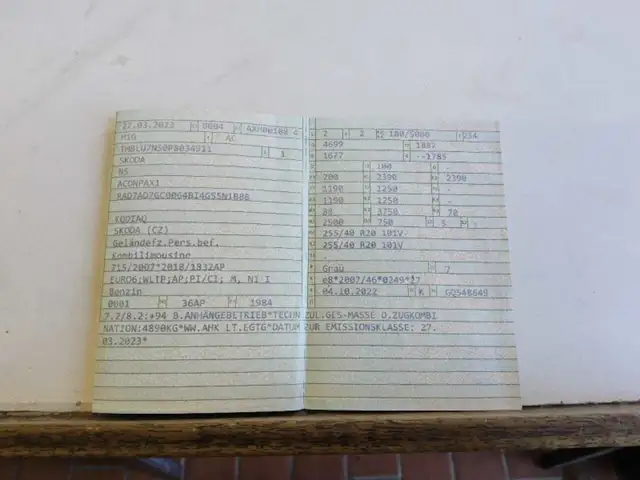 27.03.2023 0004 4
M1G AC
1
SKODA
NS
ACDNPAX1
KODIAQ
SKODA (CZ)
Geländefz.Pers.bef.
Kombilimousine
715/2007*2018/1832AP
EURO6;WLTP;AP;PI/CI; M, N1 I
Benzin
0001 36AP 1984
2 2 180/5000 234
4699 1882
1677 -1785
100
200 2390 2390
1190 1250 -
1190 1250 -
88 3750 70
2500 750 5
255/40 R20 101V
255/40 R20 101V
-
Grau 7
e8*2007/46*0249*
04.10.2022 K GQ548649
7.7/8.2:+94 B.ANHÄNGEBETRIEB*TECHN ZUL.GES-MASSE D.ZUGKOMBI
NATION:4890KG*WW.AHK LT.EGTG*DATUM ZUR EMISSIONSKLASSE: 27.
03.2023*